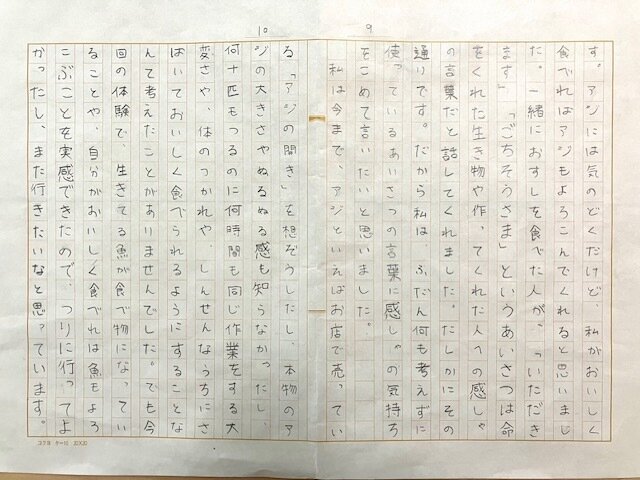 9
す。アジには気のどくだけど、私がおいしく
食べればアジもよろこんでくれると思いまし
た。一緒におすしを食べた人が、「いただき
ます」「ごちそうさま」というあいさつは命
をくれた生き物や作ってくれた人への感しゃ
の言葉だと話してくれました。たしかにその
通りです。だから私は、ふだん何も考えずに
使っているあいさつの言葉に感しゃの気持ち
をこめて言いたいと思いました。
私は今まで、アジといえばお店で売ってい
10
る「アジの開き」を想ぞうしたし、本物のア
ジの大きさやぬるぬる感も知らなかったし、
何十匹もつるのに何時間も同じ作業をする大
変さや、体のつかれや、しんせんなうちにさ
ばいておいしく食べられるようにすることな
んて考えたことがありませんでした。でも今
回の体験で、生きてる魚が食べ物になってい
ることや、自分がおいしく食べれは魚もよろ
こぶことを実感できたので、つりに行ってよ
かったし、また行きたいなと思っています。
コクヨ ケー10 20×20